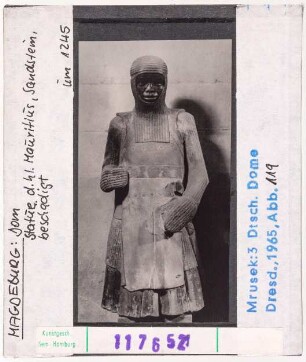 MAGDEBURG: Dom
Statue d. hl. Mauritius, Sandstein,
beschädigt
um 1245
Mrusek: 3 Dtsch. Dome
Dresd., 1965, Abb. 119
Kunstgesch.
Sem. Hamburg
117652